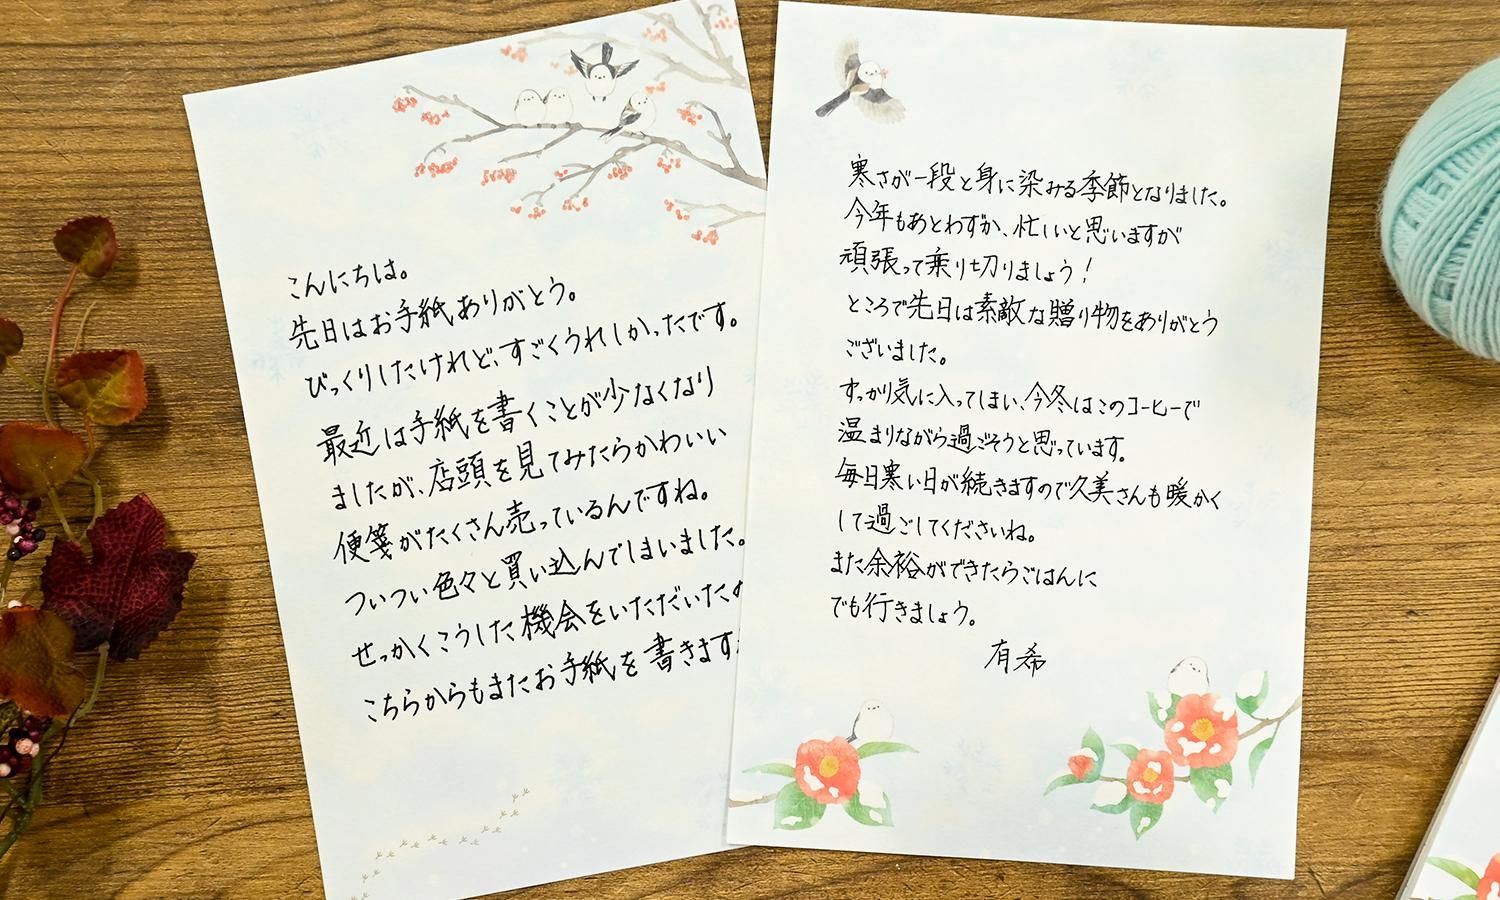 こんにちは。
先日はお手紙ありがとう。
びっくりしたけれど、すごくうれしかったです。
最近は手紙を書くことが少なくなり
ましたが、店頭を見てみたらかわいい
便箋がたくさん売っているんですね。
ついつい色々と買い込んでしまいました。
せっかくこうした機会をいただいたの
こちらからもまたお手紙を書きます
寒さが一段と身に染みる季節となりました。
今年もあとわずか、忙しいと思いますが
頑張って乗り切りましょう！
ところで先日は素敵な贈り物をありがとう
ございました。
すっかり気に入ってしまい、今冬はこのコーヒーで
温まりながら過ごそうと思っています。
毎日寒い日が続きますので久美さんも暖かく
して過ごしてくださいね。
また余裕ができたらごはんに
でも行きましょう。
有希